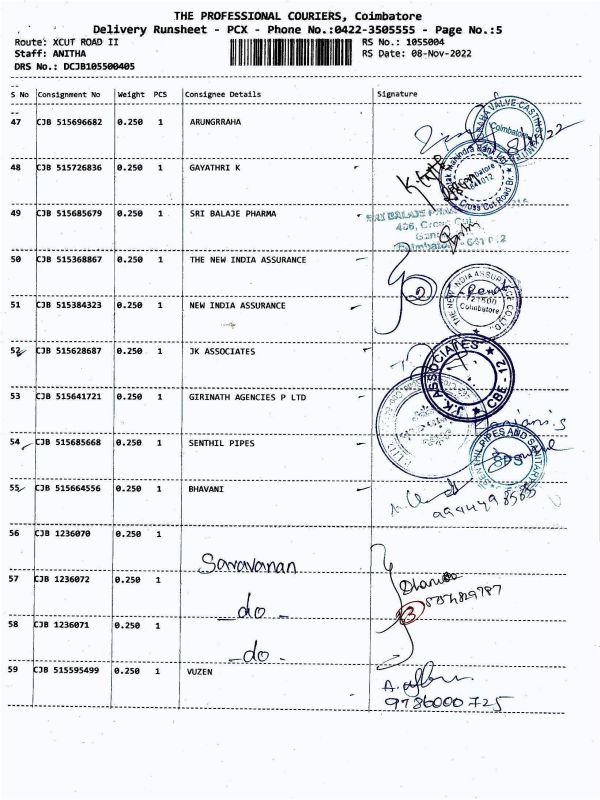 THE PROFESSIONAL COURIERS, Coimbatore
Delivery Runsheet - PCX - Phone No.:0422-3505555 - Page No.:5
Route: XCUT ROAD II RS No.: 1055004
Staff: ANITHA RS Date: 08-Nov-2022
DRS No.: DCJB105500405
S No Consignment No Weight PCS Consignee Details Signature
47 CJB 515696682 0.250 1 ARUNGRRAHA
48 CJB 515726836 0.250 1 GAYATHRI K
49 CJB 515685679 0.250 1 SRI BALAJE PHARMA
50 CJB 515368867 0.250 1 THE NEW INDIA ASSURANCE
51 CJB 515384323 0.250 1 NEW INDIA ASSURANCE
52 CJB 515628687 0.250 1 JK ASSOCIATES
53 CJB 515641721 0.250 1 GIRINATH AGENCIES P LTD
54 CJB 515685668 0.250 1 SENTHIL PIPES
55 CJB 515664556 0.250 1 BHAVANI
56 CJB 1236070 0.250 1
Saravanan
57 CJB 1236072 0.250 1
-do-
58 CJB 1236071 0.250 1
-do-
59 CJB 515595499 0.250 1 VUZEN
VALVE CASTING
Coimbatore
Mahindra Bank Ltd
Cross Cut Road Br.
SRI BALAJE
406, Cross Cut
THE NEW INDIA ASSURANCE CO. LTD.
721500
Coimbatore
J.K. ASSOCIATES ★ CBE - 12 ★
SENTHIL PIPES AND SANITARY
SPS
9944798585
3
9786000725